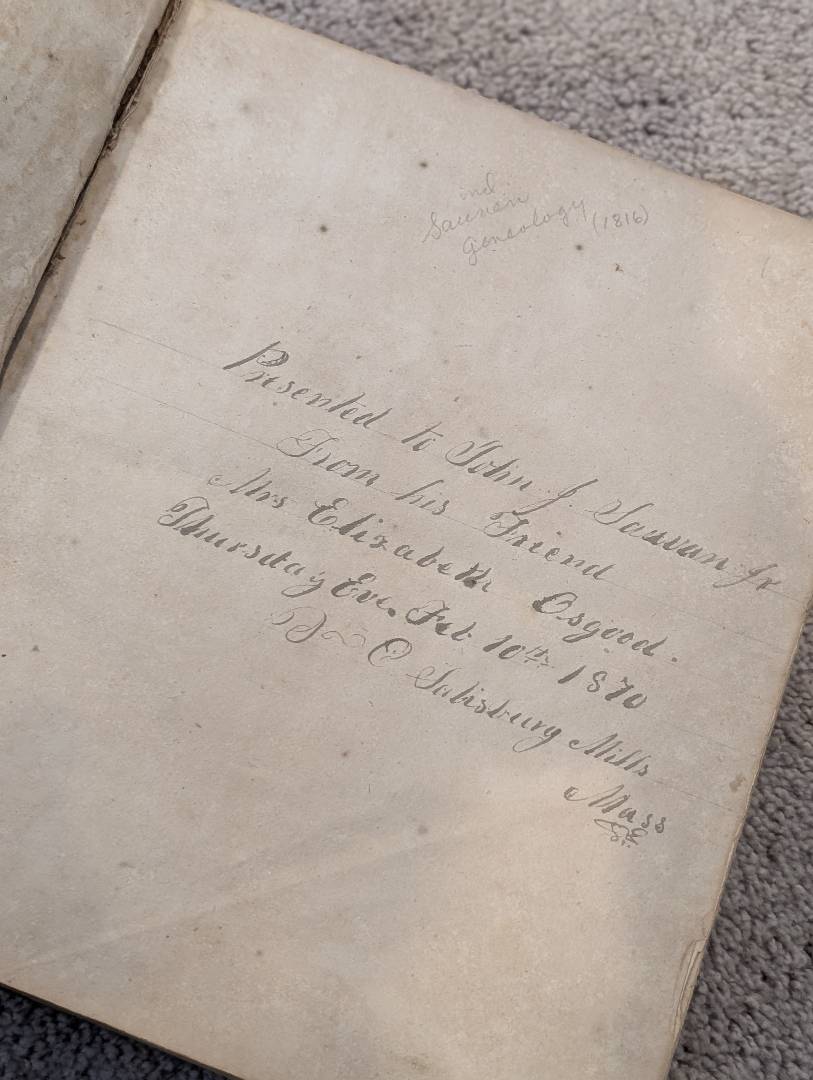 ind
Sauvan
Geneology (1816)
Presented to John J. Sauvan Jr
From his Friend
Mrs Elizabeth Osgood.
Thursday Eve. Feb. 10th 1870
Salisbury Mills
Mass